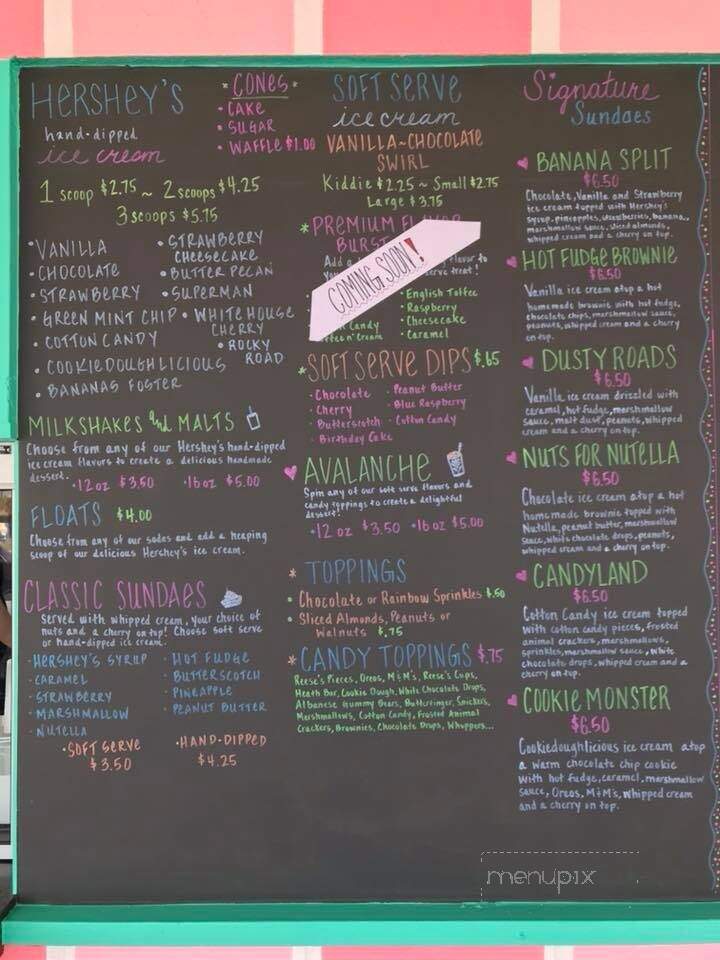 HERSHEY'S
hand-dipped
ice cream
1 scoop $2.75 ~ 2 scoops $4.25
3 scoops $5.75
• VANILLA
• CHOCOLATE
• STRAWBERRY
• GREEN MINT CHIP
• COTTON CANDY
• COOKIEDOUGHLICIOUS
• BANANAS FOSTER
• STRAWBERRY
CHEESECAKE
• BUTTER PECAN
• SUPERMAN
• WHITE HOUSE
CHERRY
• ROCKY
ROAD
• CONES •
• CAKE
• SUGAR
• WAFFLE $1.00
MILKSHAKES and MALTS
Choose from any of our Hershey's hand-dipped
ice cream flavors to create a delicious handmade
dessert.
• 12 oz $3.50 • 16 oz $5.00
FLOATS $4.00
Choose from any of our sodas and add a heaping
scoop of our delicious Hershey's ice cream.
CLASSIC SUNDAES
Served with whipped cream, your choice of
nuts and a cherry on top! Choose soft serve
or hand-dipped ice cream.
• HERSHEY'S SYRUP
• CARAMEL
• STRAWBERRY
• MARSHMALLOW
• NUTELLA
• HOT FUDGE
• BUTTERSCOTCH
• PINEAPPLE
• PEANUT BUTTER
• SOFT SERVE
$3.50
• HAND-DIPPED
$4.25
SOFT SERVE
ice cream
VANILLA~CHOCOLATE
SWIRL
Kiddie $2.25 ~ Small $2.75
Large $3.75
* PREMIUM
BURST
Add a flavor to
treat!
COMING SOON!
Candy
n' Cream
• English Toffee
• Raspberry
• Cheesecake
• Caramel
* SOFT SERVE DIPS $.65
• Chocolate
• Cherry
• Butterscotch
• Birthday Cake
• Peanut Butter
• Blue Raspberry
• Cotton Candy
AVALANCHE
Spin any of our soft serve flavors and
candy toppings to create a delightful
dessert!
• 12 oz $3.50 • 16 oz $5.00
* TOPPINGS
• Chocolate or Rainbow Sprinkles $.50
• Sliced Almonds, Peanuts or
Walnuts $.75
* CANDY TOPPINGS $.75
Reese's Pieces, Oreos, M&M's, Reese's Cups,
Heath Bar, Cookie Dough, White Chocolate Drops,
Albanese Gummy Bears, Butterfinger, Snickers,
Marshmallows, Cotton Candy, Frosted Animal
Crackers, Brownies, Chocolate Drops, Whoppers...
Signature
Sundaes
BANANA SPLIT
$6.50
Chocolate, Vanilla and Strawberry
ice cream topped with Hershey's
syrup, pineapples, strawberries, banana,
marshmallow sauce, sliced almonds,
whipped cream and a cherry on top.
HOT FUDGE BROWNIE
$6.50
Vanilla ice cream atop a hot
homemade brownie with hot fudge,
chocolate chips, marshmallow sauce,
peanuts, whipped cream and a cherry
on top.
DUSTY ROADS
$6.50
Vanilla ice cream drizzled with
caramel, hot fudge, marshmallow
sauce, malt dust, peanuts, whipped
cream and a cherry on top.
NUTS FOR NUTELLA
$6.50
Chocolate ice cream atop a hot
homemade brownie topped with
Nutella, peanut butter, marshmallow
sauce, white chocolate drops, peanuts,
whipped cream and a cherry on top.
CANDYLAND
$6.50
Cotton Candy ice cream topped
with cotton candy pieces, frosted
animal crackers, marshmallows,
sprinkles, marshmallow sauce, white
chocolate drops, whipped cream and a
cherry on top.
COOKIE MONSTER
$6.50
Cookiedoughlicious ice cream atop
a warm chocolate chip cookie
with hot fudge, caramel, marshmallow
sauce, Oreos, M&M's, whipped cream
and a cherry on top.
menupix